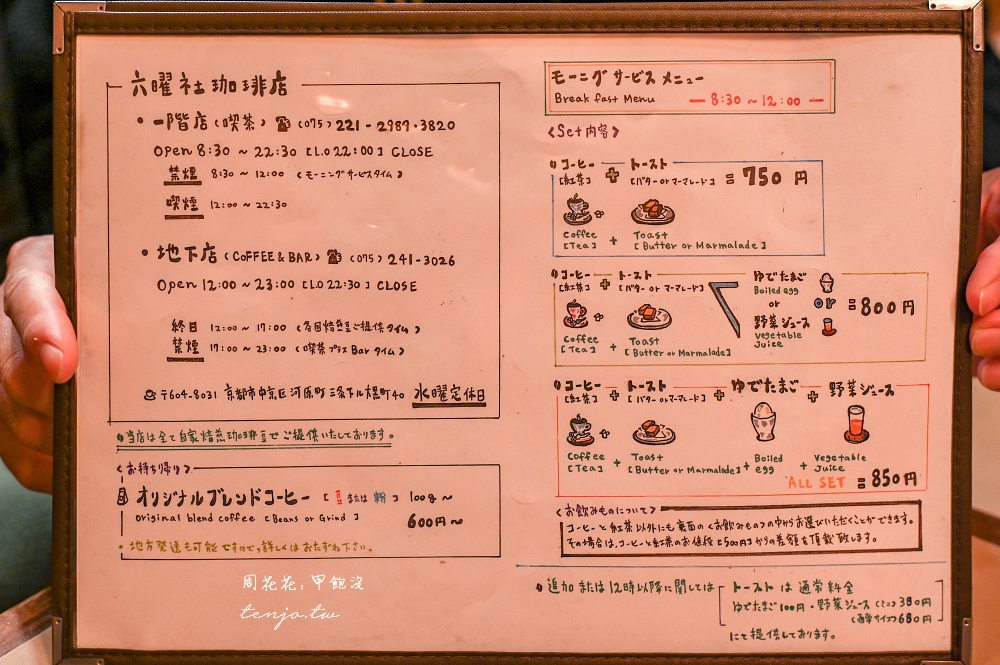 六曜社珈琲店
・一階店（喫茶）☎（075）221-2989・3820
Open 8:30 ～ 22:30 [L.O 22:00] CLOSE
禁煙 8:30 ～ 12:00 （モーニングサービスタイム）
喫煙 12:00 ～ 22:30
・地下店（COFFEE & BAR）☎（075）241-3026
Open 12:00 ～ 23:00 [L.O 22:30] CLOSE
終日 12:00 ～ 17:00 （各国焙煎豆ご提供タイム）
禁煙 17:00 ～ 23:00 （喫茶プラス Bar タイム）
〒604-8031 京都市中京区河原町三条下ル大黒町40 水曜定休日
当店は全て自家焙煎珈琲豆でご提供いたしております。
〈お持ち帰り〉
オリジナルブレンドコーヒー [豆または粉] 100g～
Original blend coffee [Beans or Grind] 600円～
・地方発送も可能ですので、詳しくはおたずね下さい。
モーニングサービスメニュー
Break fast Menu － 8:30 ～ 12:00 －
〈Set内容〉
コーヒー + トースト
[紅茶] [バターorマーマレード] = 750円
Coffee + Toast
[Tea] [Butter or Marmalade]
コーヒー + トースト ゆでたまご
[紅茶] [バターorマーマレード] Boiled egg
or = 800円
野菜ジュース
Coffee + Toast Vegetable
[Tea] [Butter or Marmalade] Juice
コーヒー + トースト + ゆでたまご + 野菜ジュース
[紅茶] [バターorマーマレード]
Coffee + Toast + Boiled + Vegetable
[Tea] [Butter or Marmalade] egg Juice
ALL SET = 850円
〈お飲みものについて〉
コーヒーと紅茶以外にも裏面の〈お飲みもの〉の中からお選びいただくことができます。
その場合は、コーヒーと紅茶のお値段[500円]からの差額を頂戴致します。
追加または12時以降に関しては トーストは通常料金
ゆでたまご100円・野菜ジュース（ミニ）380円
（通常サイズ）680円
にて提供しております。
周花花，甲飽沒
tenjo.tw